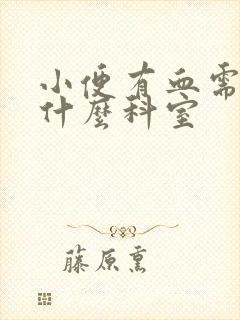 小便有血需
什麼科室
藤原熏